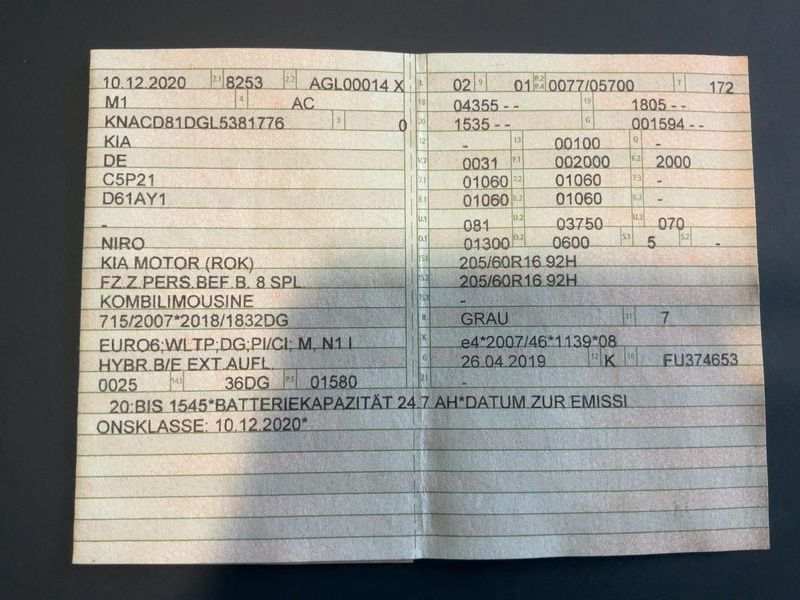 10.12.2020 2.1 8253 2.2 AGL00014 X
M1 4 AC
KNACD81DGL5381776 3 0
KIA
DE
C5P21
D61AY1
-
NIRO
KIA MOTOR (ROK)
FZ.Z.PERS.BEF.B. 8 SPL.
KOMBILIMOUSINE
715/2007*2018/1832DG
EURO6;WLTP;DG;PI/CI; M, N1 I
HYBR.B/E EXT.AUFL.
0025 14.1 36DG P.1 01580
20:BIS 1545*BATTERIEKAPAZITÄT 24.7 AH*DATUM ZUR EMISSI
ONSKLASSE: 10.12.2020*
L 02 9 01 P.2 P.4 0077/05700 T 172
18 04355 - - 19 1805 - -
20 1535 - - G 001594 - -
12 - 13 00100 Q -
V.7 0031 F.1 002000 F.2 2000
7.1 01060 7.2 01060 7.3 -
8.1 01060 8.2 01060 8.3 -
U.1 081 U.2 03750 U.3 070
O.1 01300 O.2 0600 S.1 5 S.2 -
15.1 205/60R16 92H
15.2 205/60R16 92H
15.3 -
R GRAU 11 7
K e4*2007/46*1139*08
6 26.04.2019 17 K 16 FU374653
21 -